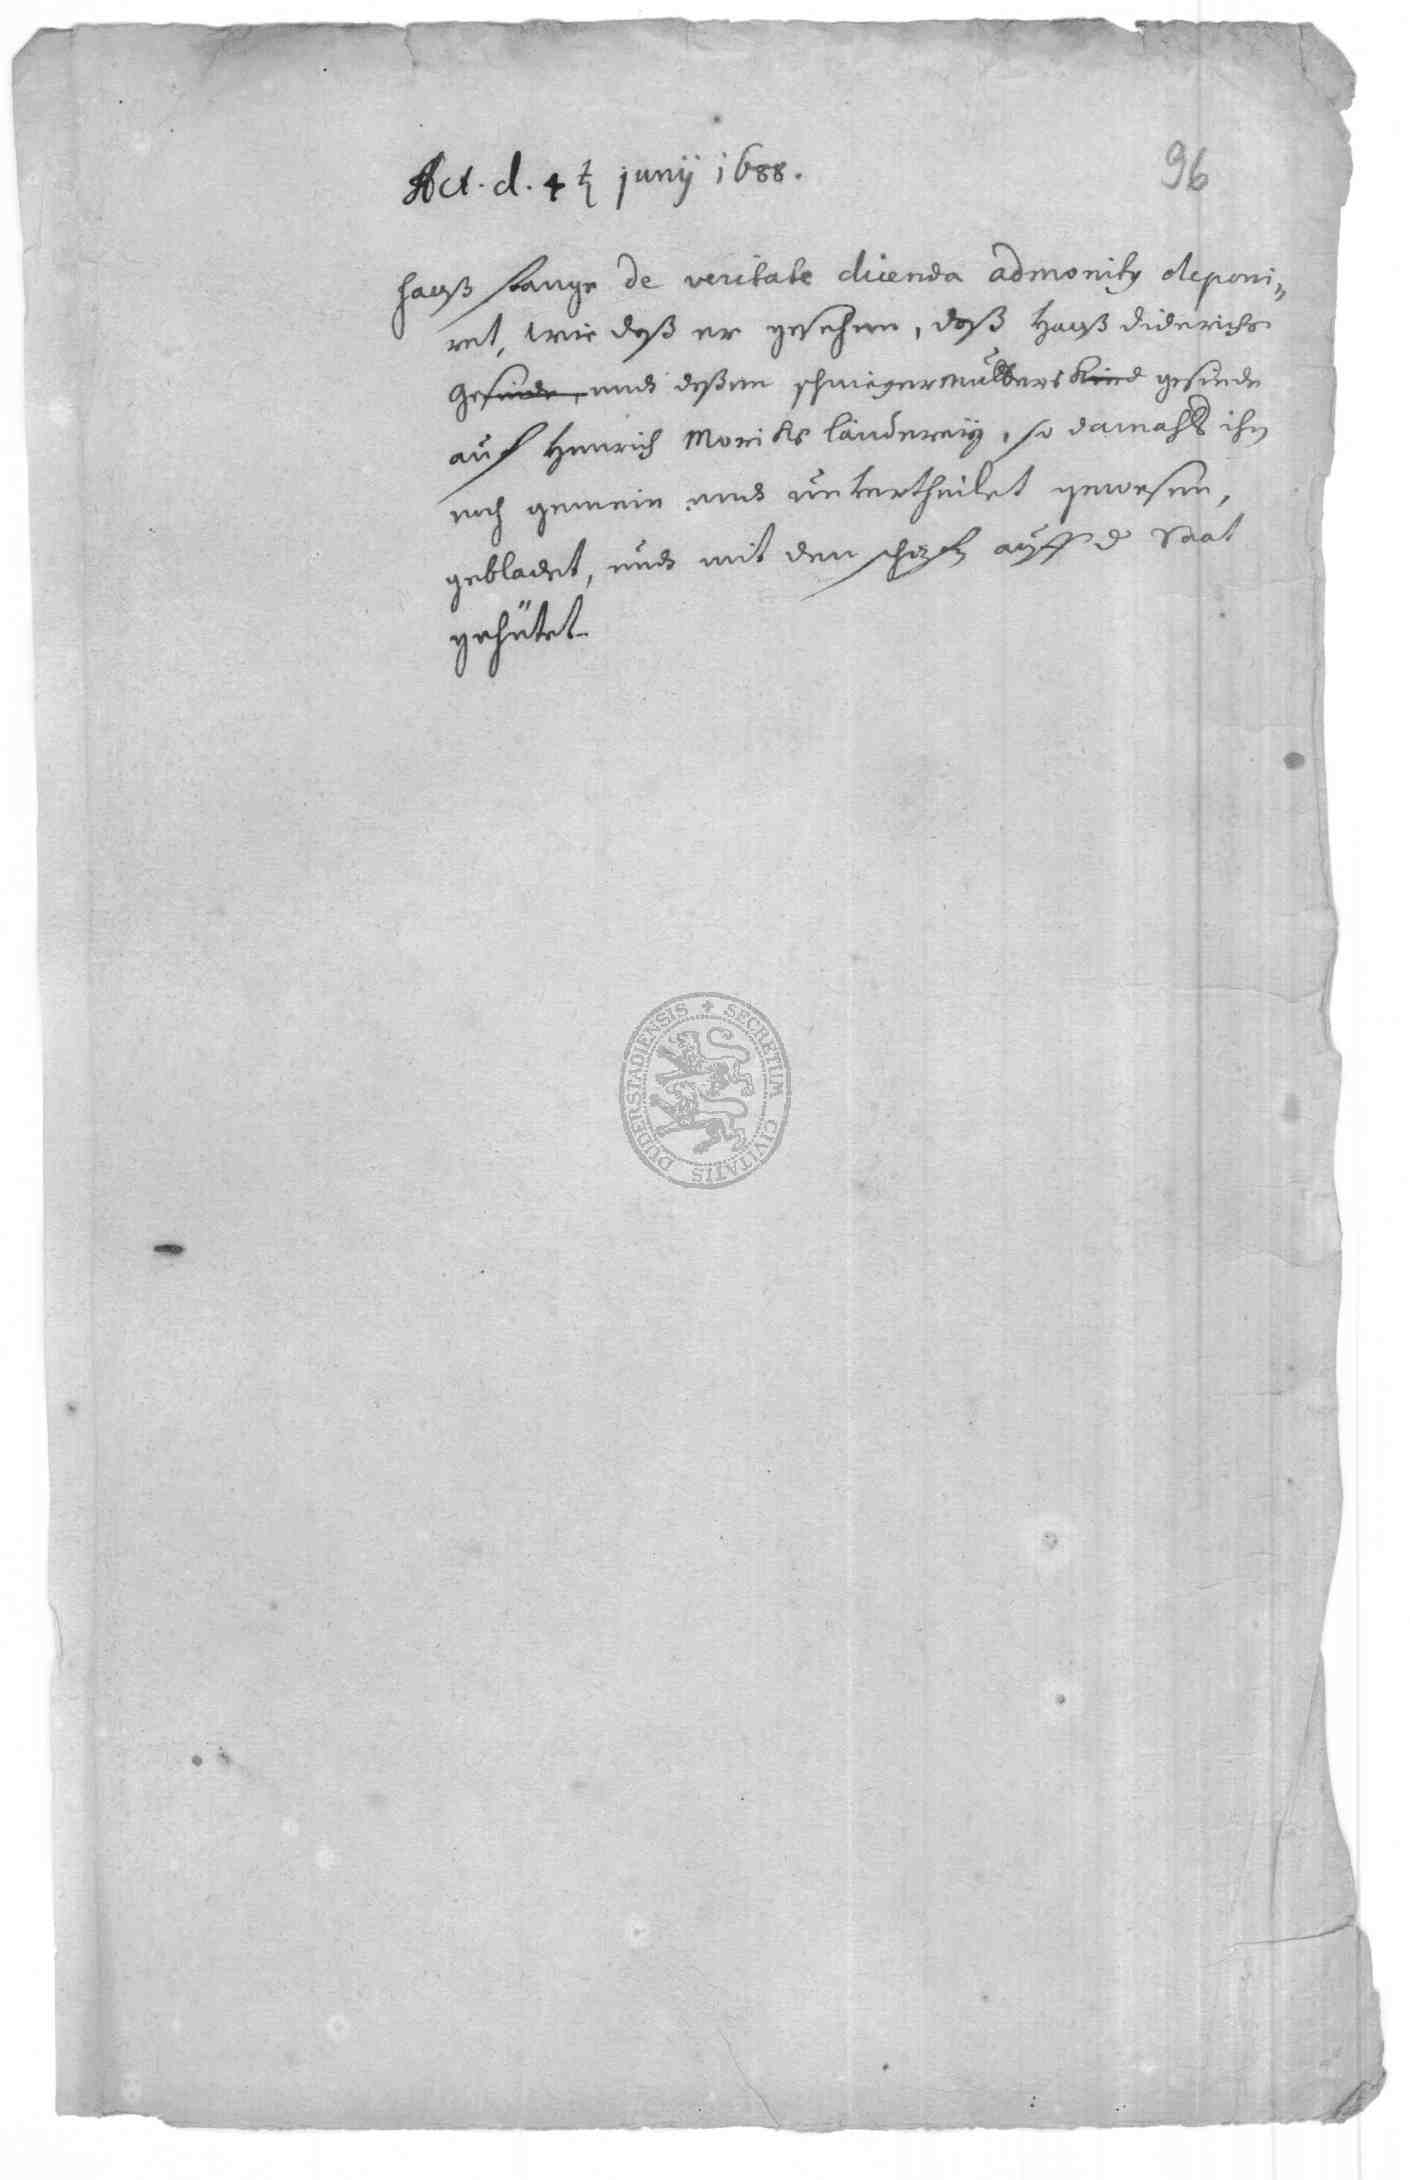 Act. d. 4 t junÿ 1688.
96
Hanß Lange de veritate dicenda admonitꝰ deponi„
ret, wie daß er gesehen, daß Hanß Diderichs
Gesinde, und deßen schwiegermutters Kind gesinde
auf Henrich Moriks länderey, so damahls ihm
noch gemein und untertheilet gewesen,
gebladet, und mit den schafen auff d Saat
gehütet.
SECRETUM CIVITATIS DUDERSTADIENSIS